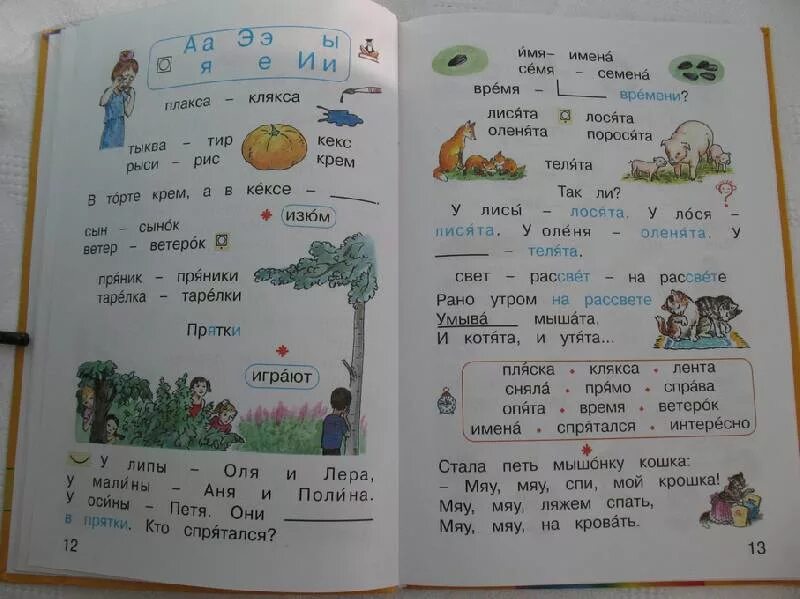 Аа Ээ ы
я е Ии
плакса – клякса
тыква – тир
рыси – рис
кекс
крем
В то́рте крем, а в ке́ксе – ____
изю́м
сын – сыно́к
ветер – ветеро́к
пря́ник – пря́ники
таре́лка – таре́лки
Прятки
игра́ют
У липы – Оля и Лера,
У мали́ны – Аня и Поли́на.
У оси́ны – Петя. Они ____
в прятки. Кто спря́тался?
12
и́мя – имена́
се́мя – семена́
вре́мя – времени?
лися́та лося́та
оленя́та порося́та
теля́та
Так ли?
У лисы́ – лося́та. У ло́ся –
лися́та. У оле́ня – оленя́та. У
____ – теля́та.
свет – рассве́т – на рассве́те
Рано утром на рассвете
Умыва́____ мыша́та,
И котя́та, и утя́та...
пля́ска • клякса • лента
сняла́ • пря́мо • спра́ва
опя́та • время • ветеро́к
имена́ • спря́тался • интере́сно
Стала петь мышо́нку кошка:
– Мяу, мяу, спи, мой крошка!
Мяу, мяу, ляжем спать,
Мяу, мяу, на крова́ть.
13